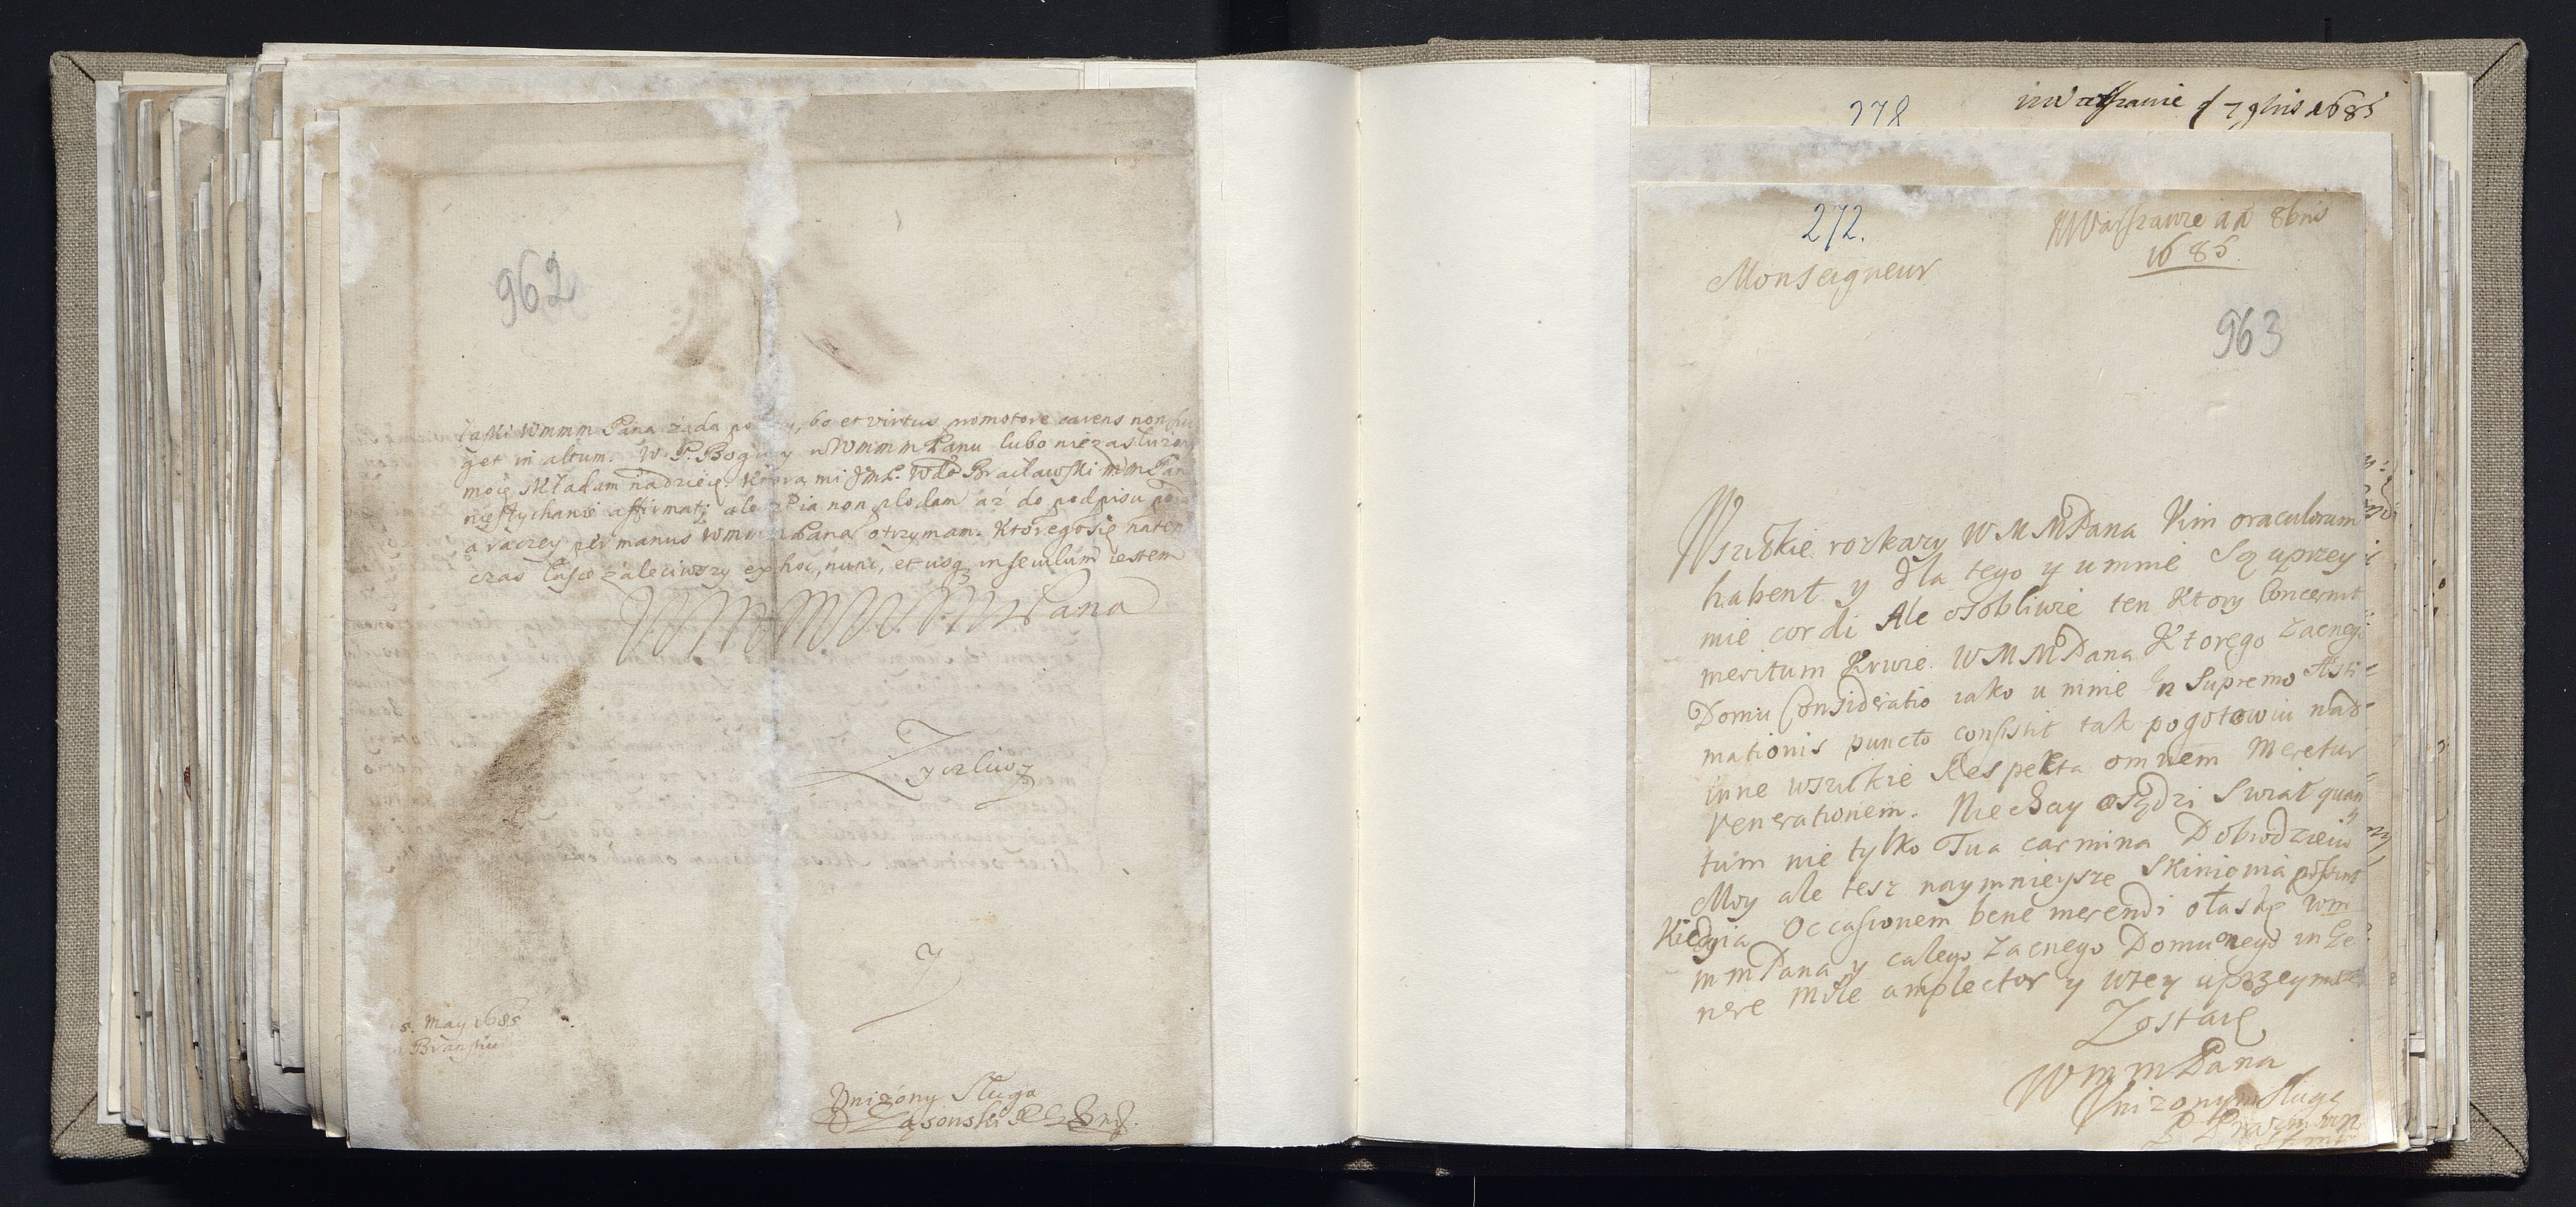 962
łaski Wmmm Pana żąda po bo et virtus promotore carens non
get in altum. W P. Bogu y u Wmmm Panu lubo niezasłużoną
moię składam nadzieię. Ktorą mi JmP. Wda Bracławski mm Pan
niesłychanie affirmat; ale non plodam aż do podpisu
a raczey per manus Wmm Pana otrzymam. Ktoregosię naten
czas łasce zaleciwszy ex hoc, nunc, et usq in seculum iestem
WMMM Pana
Zyczliwy
y
5. May 1685
Bransku
Unizony Sługa
278
w Warszawie d 7 9bris 1685
272.
W Warszawie 8bris
1685
Monseigneur
963
Wszitkie rozkazy WMMPana Vim oraculorum
habent y dla tego y u mnie Są uprzey
mie cordi Ale osobliwie ten Ktory Concernit
meritum Krwie WMMPana Ktorego Zacnego
Domu Consideratio iako u mnie In Supremo Æsti-
mationis puncto consistit tak pogotowiu nad
inne wszitkie Respekta omnem Meretur
Venerationem. Niechay osądzi Swiat quan
tum nie tylko Tua carmina Dobrodzieiu
Moy ale tesz naymnieysze Skinienia possunt
Kiedy ia Occasionem bene merendi o łaskę Wm
mmPana y całego Zacnego Domu onego in Ge
nere mille amplector y wtey uprzeymosci
Zostaię
WmmPana
Unizonym Slugą